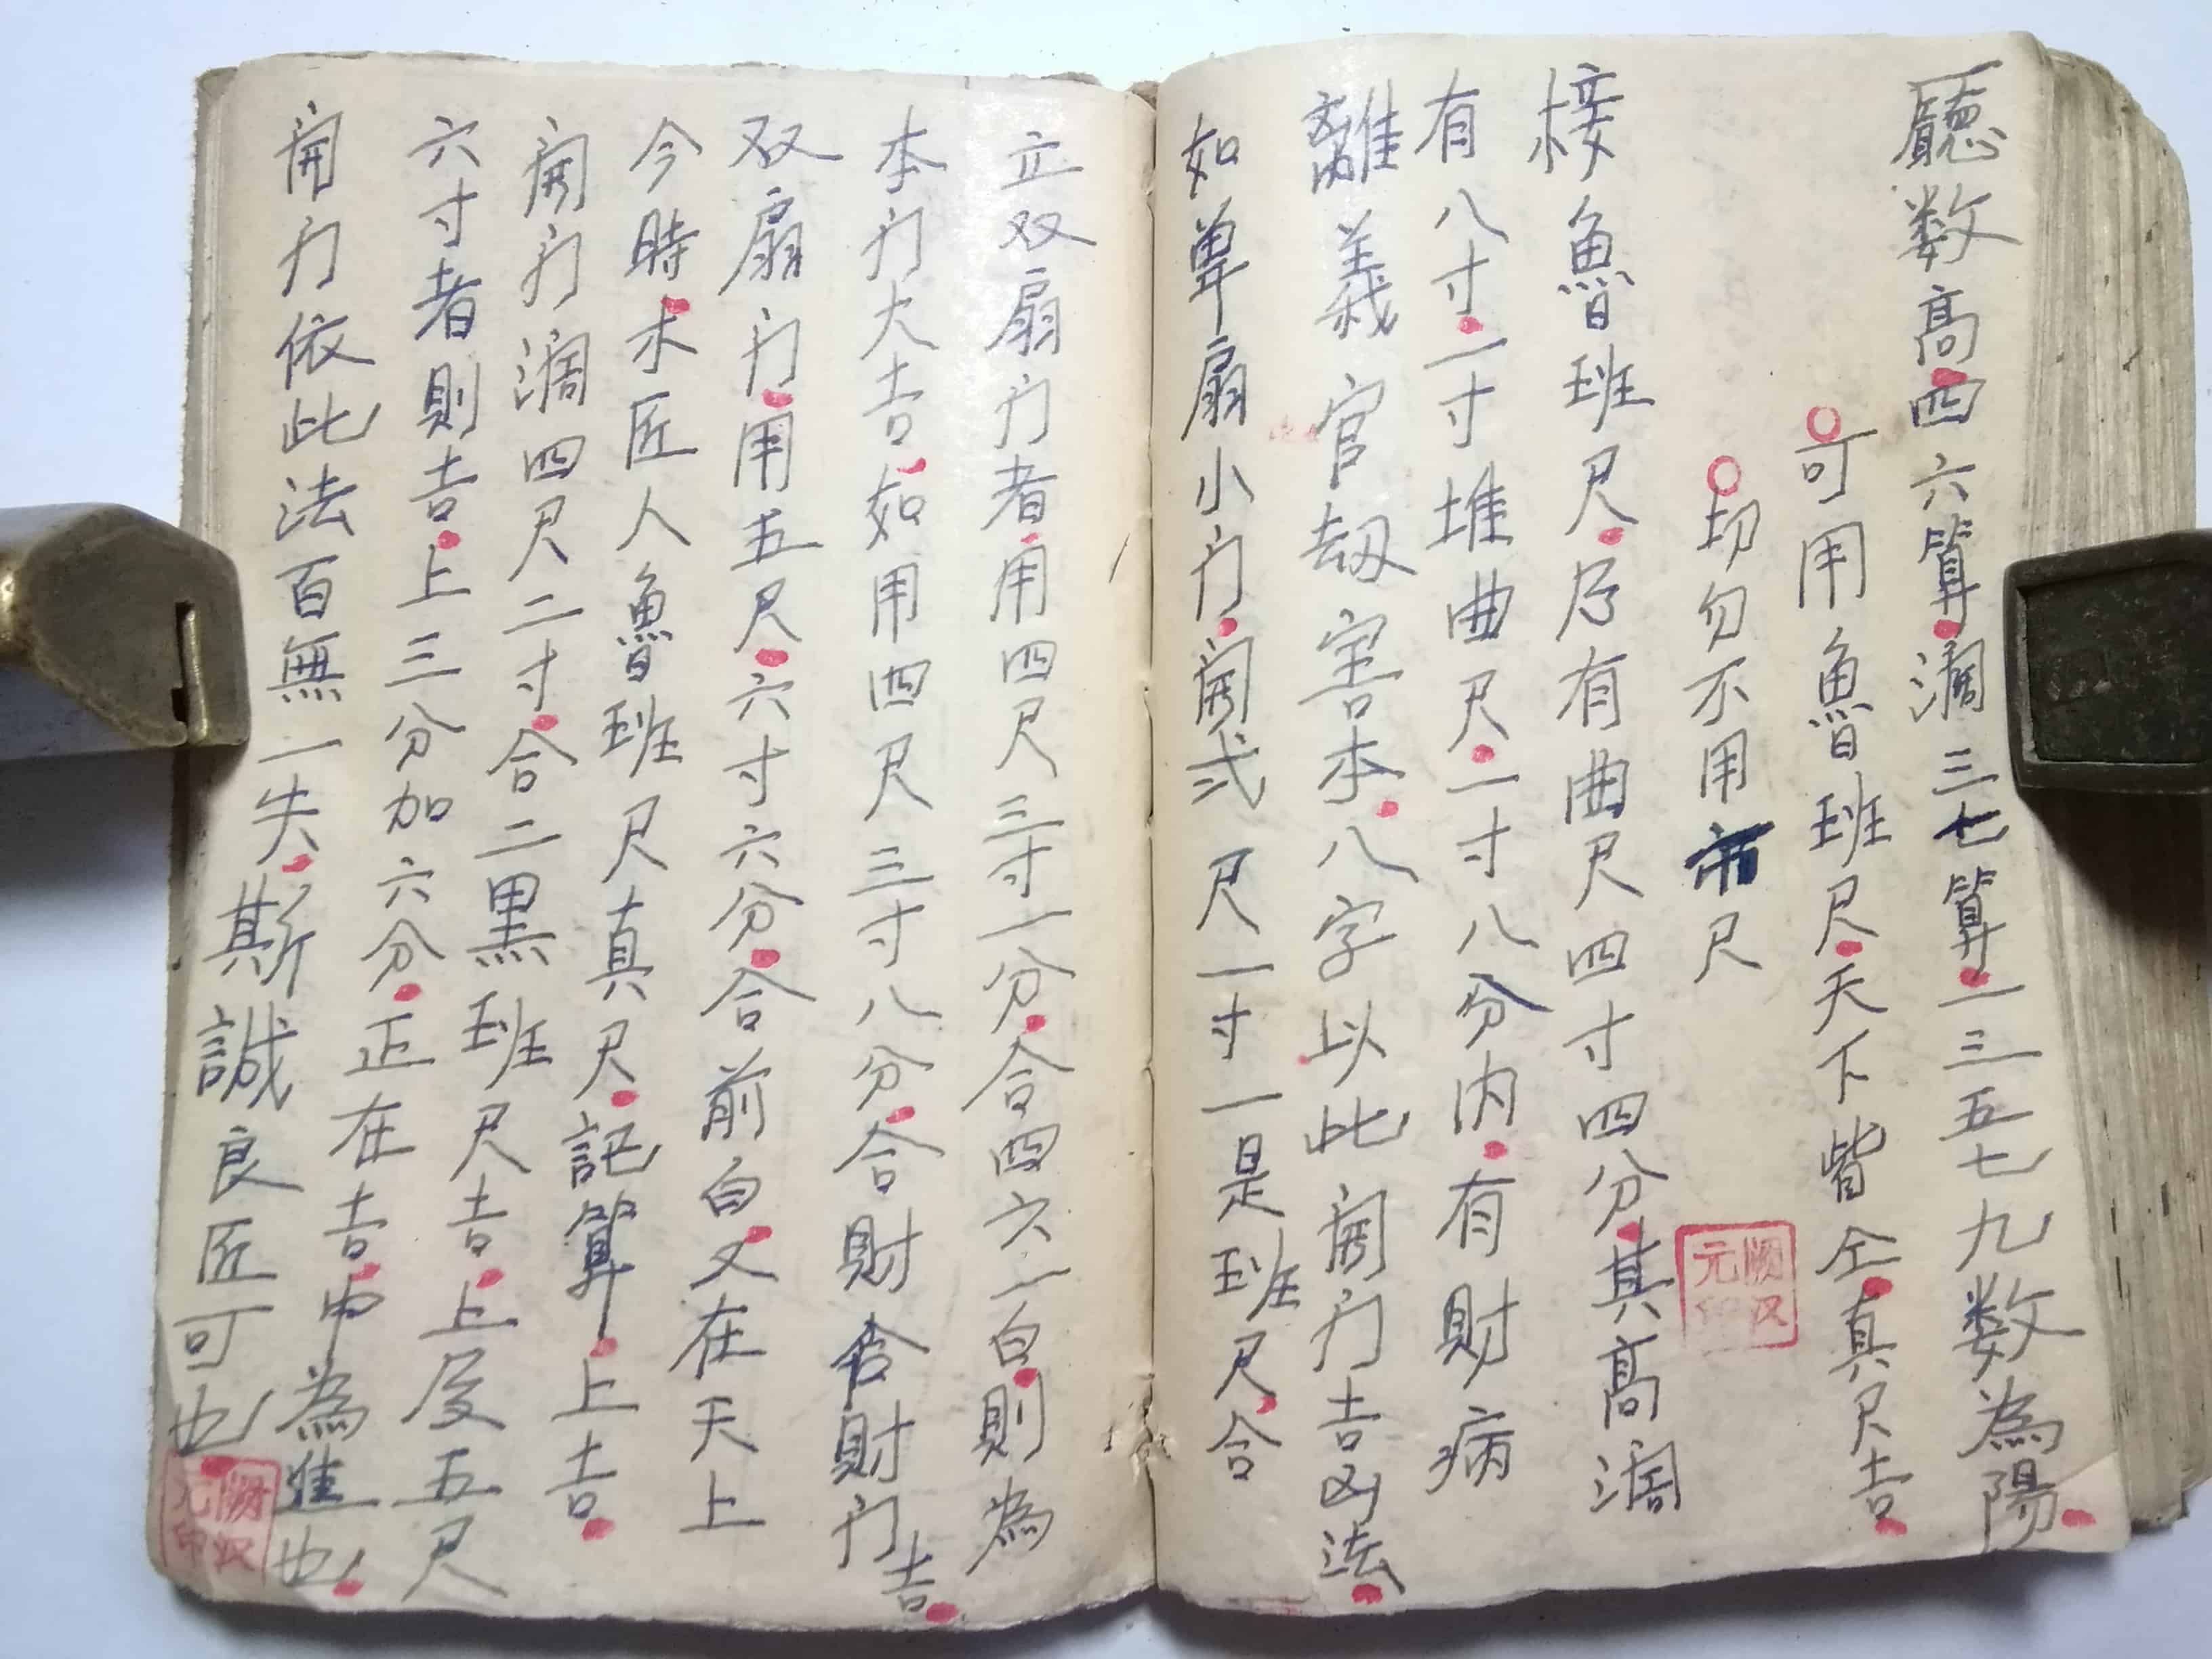 廳数高四六算濶三七算一三五七九数為陽
可用魯班尺天下皆仝真尺吉
切勿不用市尺
按魯班尺乃有曲尺四寸四分其高濶
有八寸一寸堆曲尺一寸八分内有財病
離義官劫害本八字以此開门吉凶法
如单扇小门開弍尺一寸一是班尺合
立双扇门者用四尺三寸一分合四六一白則為
本门大吉如用四尺三寸八分合財舍財门吉
双扇门用五尺六寸六分合前白又在天上
今時木匠人魯班尺真尺記算上吉
開门濶四尺二寸合二黑班尺吉上度五尺
六寸者則吉上三分加六分正在吉中為進也
開门依此法百無一失斯誠良匠可也
顺汉元印
顺汉元印